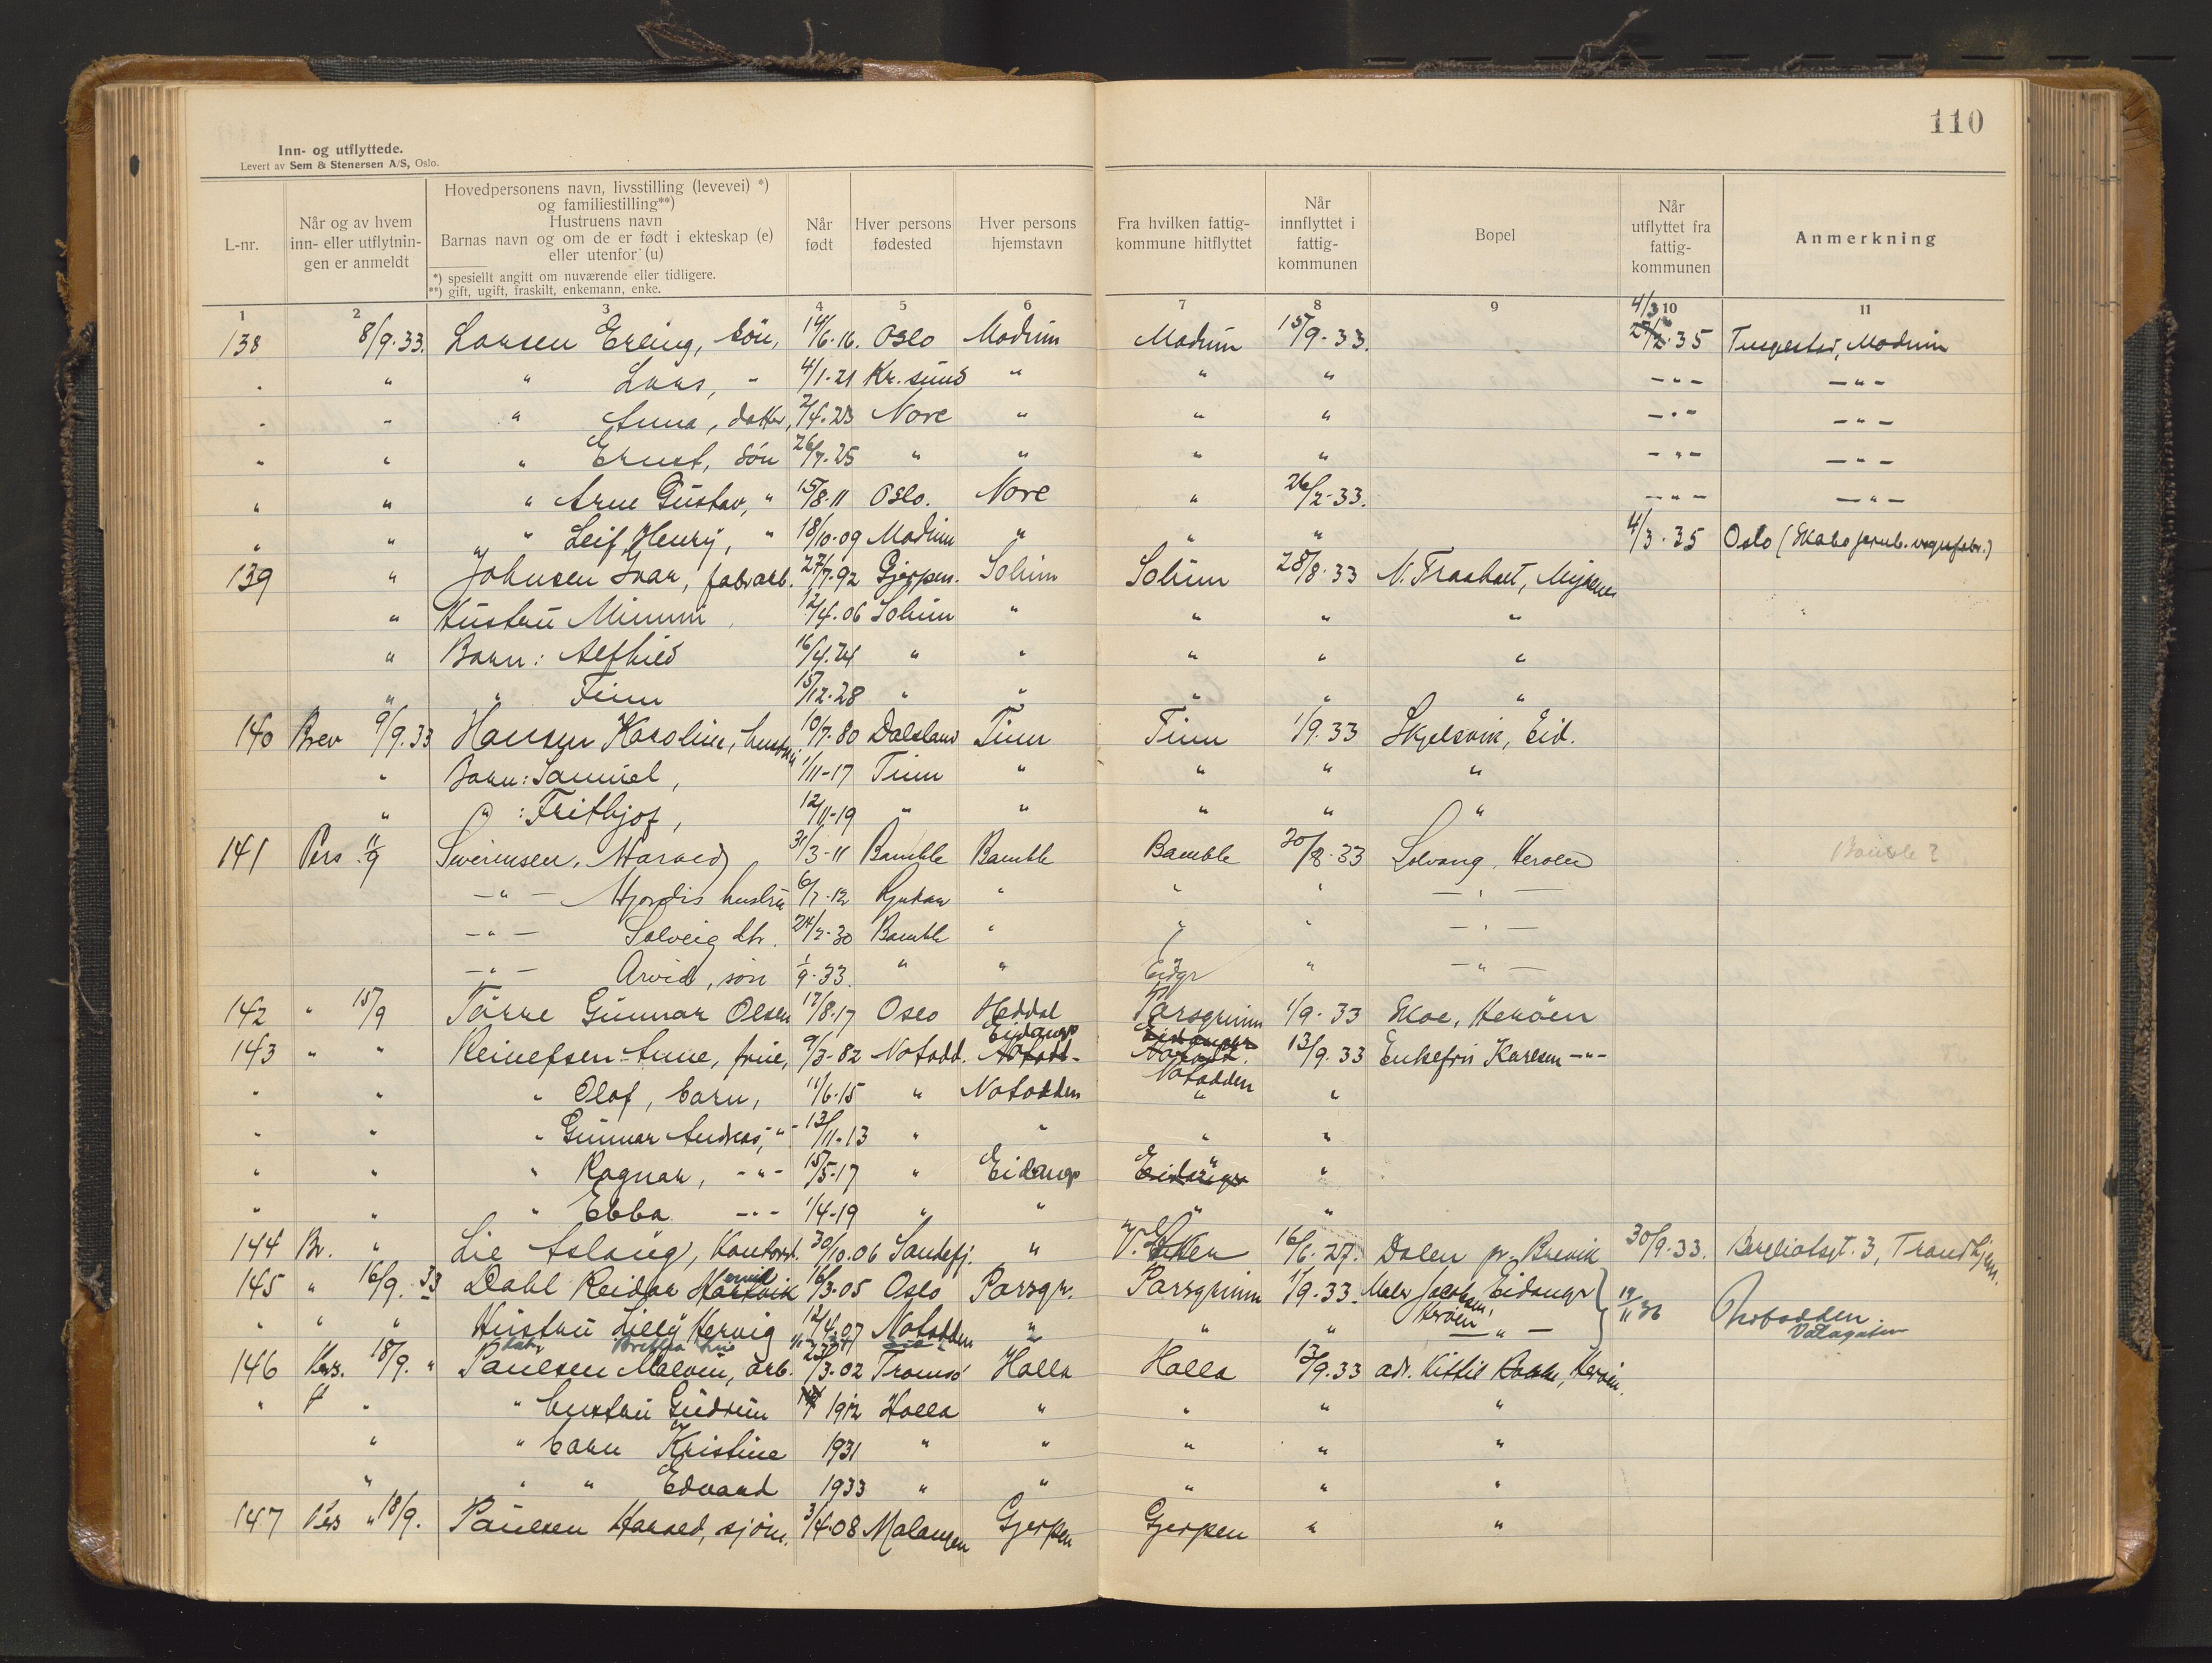 110
Inn- og utflyttede.
Levert av Sem & Stenersen A/S, Oslo.
L-nr. Når og av hvem inn- eller utflytningen er anmeldt Hovedpersonens navn, livsstilling (levevei) *) og familiestilling**) Hustruens navn Barnas navn og om de er født i ekteskap (e) eller utenfor (u) Når født Hver persons fødested Hver persons hjemstavn Fra hvilken fattigkommune hitflyttet Når innflyttet i fattigkommunen Bopel Når utflyttet fra fattigkommunen Anmerkning
*) spesiellt angitt om nuværende eller tidligere.
**) gift, ugift, fraskilt, enkemann, enke.
1 2 3 4 5 6 7 8 9 10 11
138 8/9.33. Larsen Erling, søn, 14/6.16. Oslo Modum Modum 15/9-33. 4/3 35 Modum
" " " Lars, " 4/1-21 Kr.sund " " " -"- -"-
" " " Anna, datter, 2/4-23 Nore " " " -"- -"-
" " " Ernst, søn 26/7-25 " " " " -"- -"-
" " " Arne Gustav, " 15/8-11 Oslo. Nore " 26/2-33. -"- -"-
" " " Leif Henry, " 18/10-09 Modum " " " 4/3.35 Oslo
139 " Johnsen Ivar, fabr.arb. 27/7-92 Gjerpen. Solum Solum 28/8.33 N.
" Hustru Mimmi 12/4.06 Solum " " " "
" Barn: Alfhild 16/4.24 " " " " "
" " Finn 15/12-28 " " " " "
140 Brev 9/9.33 Hansen Karoline, hustru 10/7-80 Dalsland Tinn Tinn 1/9.33 Skjelsvik, Eid.
" Barn: Samuel, 1/11-17 Tinn " " " "
" " : Frithjof, 12/11-19 " " " " "
141 Pers 11/9 Harald 31/3-11 Bamble Bamble Bamble 30/8-33 Solvang, Herøen Bamble?
-"- Hjørdis hustru 6/7-12 Rjukan " " " -"-
-"- Solveig dtr. 24/2-30 Bamble " " " -"-
-"- Arvid, søn 1/9-33. " " Eidgr " -"-
142 " 15/9 Tårre Gunnar Olsen 17/8-17 Oslo Heddal Porsgrunn 1/9-33 Skoe, Herøen
143 " " Anne, frue, 9/3-82 Notodd. Notodd. Eidanger Eidanger Notodd. Notodden 13/9.33 Enkefru Karlsen -"-
" " " Olaf, barn, 11/6-15 " Notodden " "
" " " Gunnar Andreas, -"- 13/11-13 " " " "
" " " Ragnar, -"- 15/5-17 " Eidang. Eidangr "
" " " Ebba -"- 1/4-19 " " " "
144 Br. " Lie Aslaug, Kontord. 30/10.06 Sandefj. " V. 16/6-27. Dalen pr. Brevik 30/9.33. 3, Trondhjem.
145 " 16/9.33 Dahl Reidar 16/3-05 Oslo Porsgr. Porsgrunn 1/9-33. Maler Jacobsen, Eidangr Herøen 19/11 36 Notodden
" " " Hustru Lilly Hervig 12/4.07 Notodden " " " -"-
146 Pers. 18/9. " Paulsen Malvin, arb. 23/3-02 Tromsø Holla Holla 13/9.33 adr. Kittil, Herøen.
" " " hustru Gudrun 1912 Holla " " " "
" " barn Kristine 1931 " " " " "
" " " Edvard 1933 " " " " "
147 Pers " 18/9. Paulsen Harald, sjøm. 3/4-08 Malangen Gjerpen Gjerpen " "